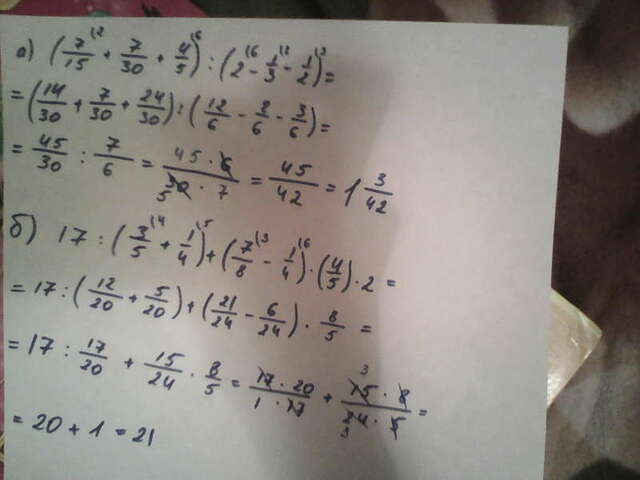 а) (7/15 (2 + 7/30 + 4/5 (6) : (2 (6 - 1/3 (2 - 1/2 (3) =
= (14/30 + 7/30 + 24/30) : (12/6 - 2/6 - 3/6) =
= 45/30 : 7/6 = 45 · 6 / 5 30 · 7 = 45/42 = 1 3/42
б) 17 : (3/5 (4 + 1/4 (5) + (7/8 (3 - 1/4 (6) · (4/5) · 2 =
= 17 : (12/20 + 5/20) + (21/24 - 6/24) · 8/5 =
= 17 : 17/20 + 15/24 · 8/5 = 17 · 20 / 1 · 17 + 3 15 · 8 / 3 24 · 5 =
= 20 + 1 = 21